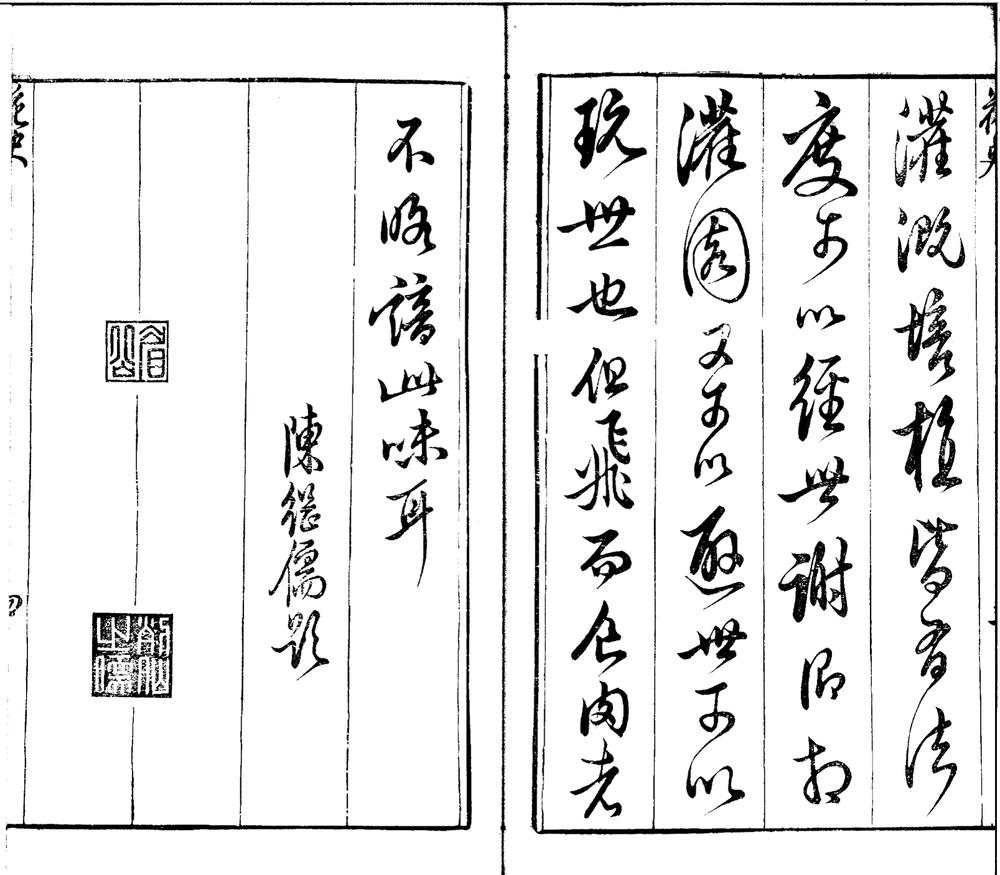 花史
灌溉培植皆有法
度可以經世謝卿相
灌園又可以避世可以
玩世也但飛而食肉者
不略諳此味耳
陳繼儒題
眉公
花史